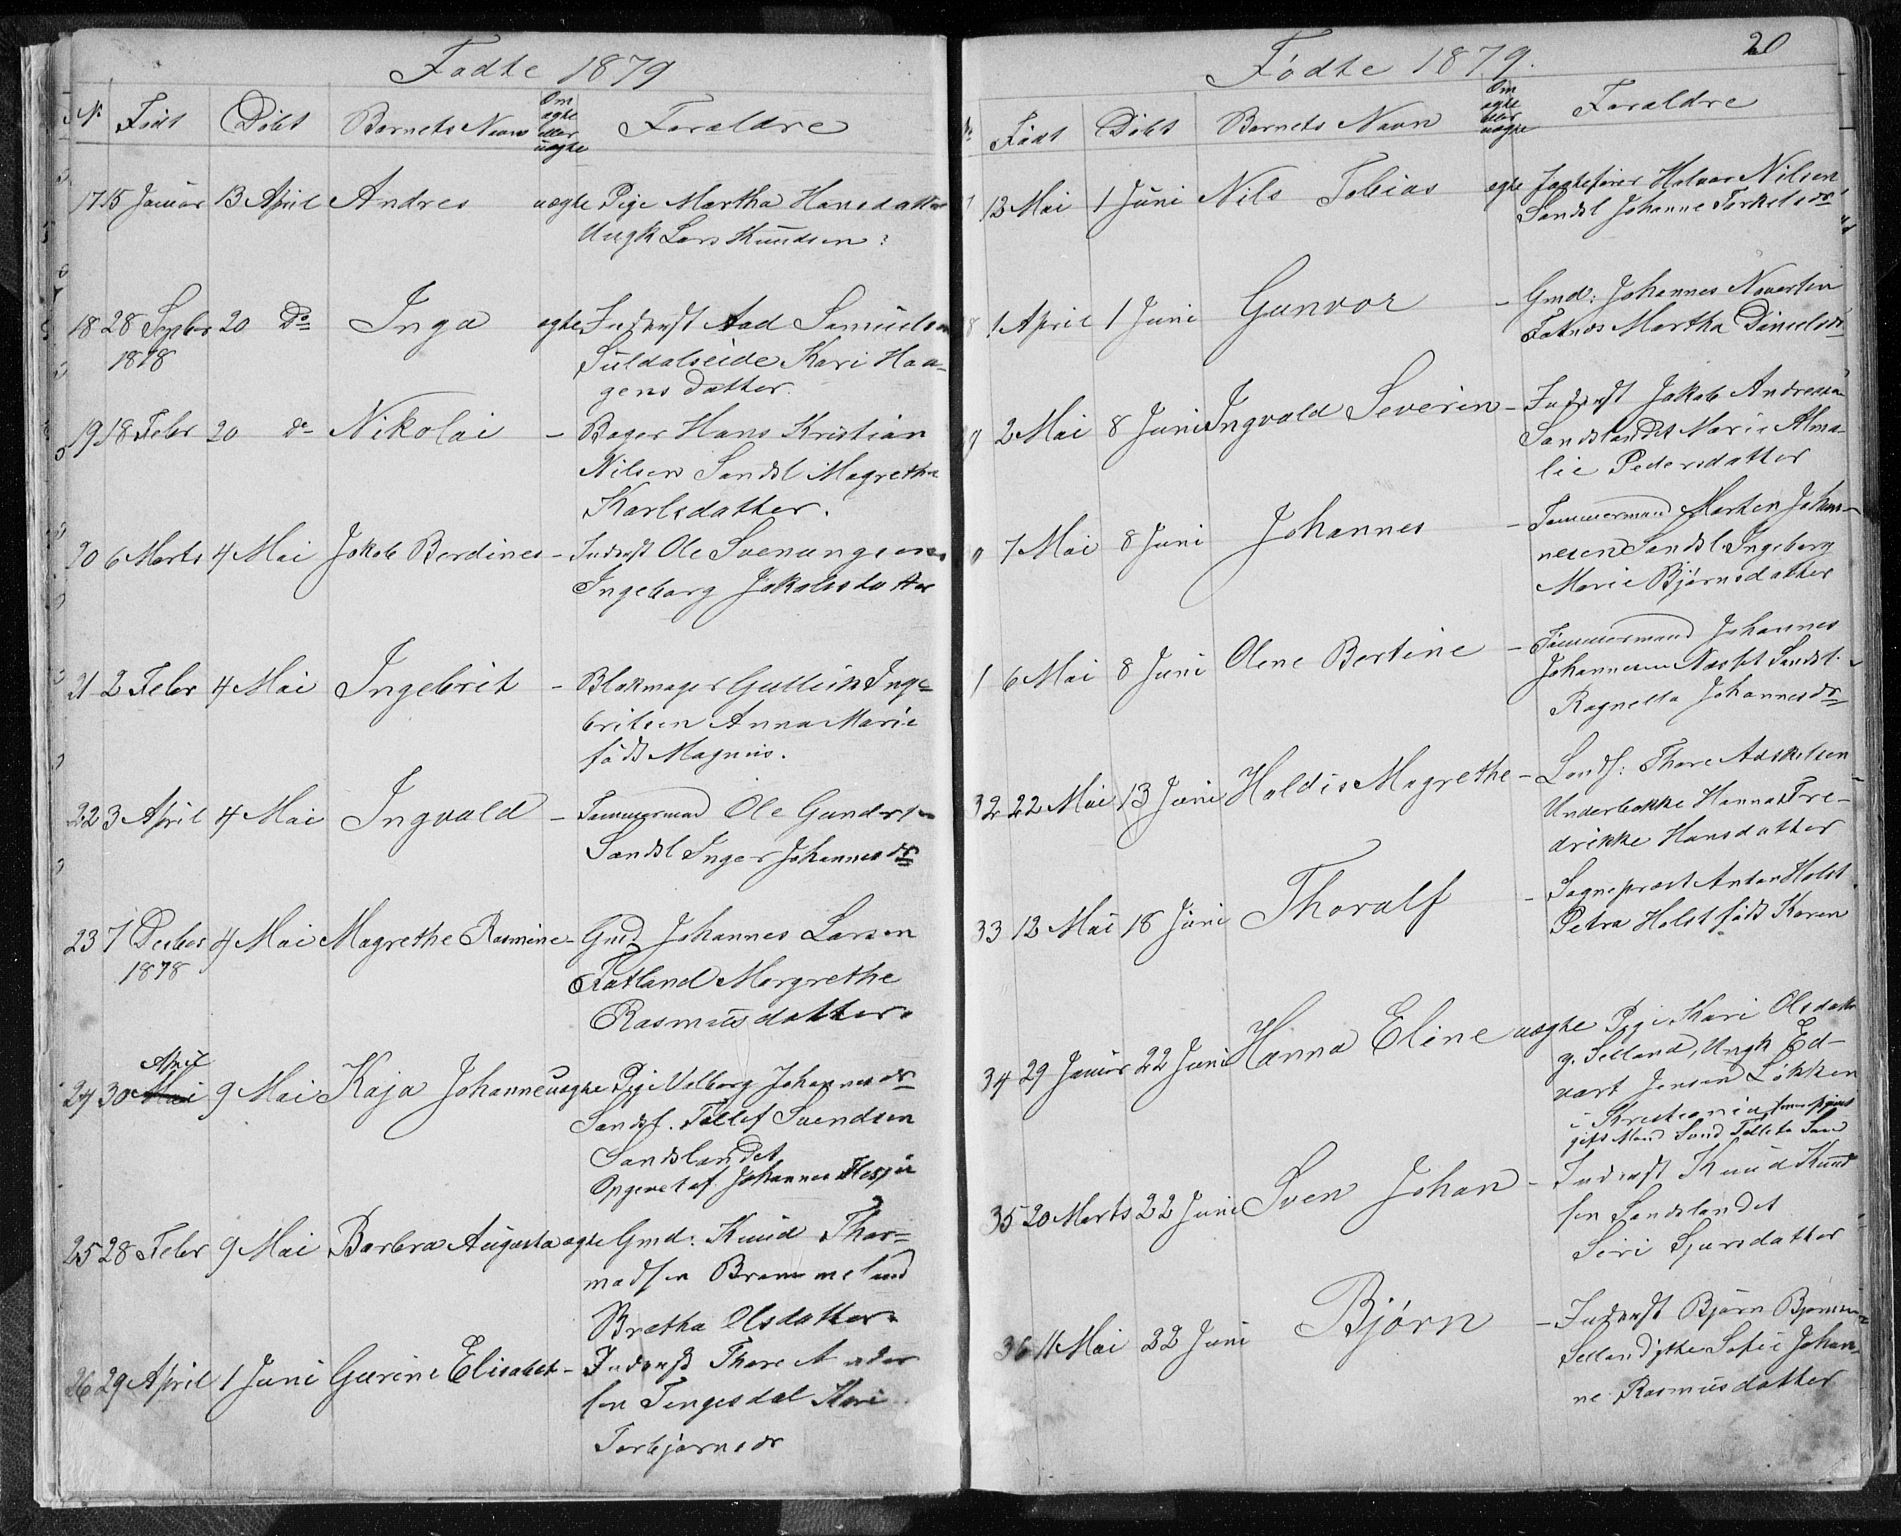 Fødte 1879
No Født Døbt Barnets Navn Om ægte eller uægte Forældre
17 15 Januar 13 April Andres uægte Pige Martha Hansdatter
Ungk Lars Knudsen:
18 28 Septbr 20 Do Inga ægte Inderst Aad Samuelsen
1878 Suldalseide Kari Haa-
gensdatter.
19 18 Febr 20 do Nikolai - Bager Hans Kristian
Nilsen Sandsl Magrethe
Karlsdatter.
20 6 Marts 4 Mai Jakob Berdines - Inderst Ole Svenungsen
Ingeborg Jakobsdatter
21 2 Febr 4 Mai Ingebrit - Blokmager Gulleik Inge-
britsen Anna Marie
født Magnus.
22 3 April 4 Mai Ingvald - Tømmermand Ole Gundersen
Sandsl Inger Johannesdr
23 7 Decbr 4 Mai Magrethe Rasmine - Gmd. Johannes Larsen
1878 Fatland Margrethe
Rasmusdatter.
April
24 30 Mai 9 Mai Kaja Johanne uægte Pige Valborg Johannesdr
Sandsl. Tollef Svendsen
Sandslandet
Opgivet af Johannes
25 28 Febr 9 Mai Barbra Augusta ægte Gmd: Knud Thor-
madsen Brommeland
Bretha Olsdatter.
26 29 April 1 Juni Gurine Elisabet - Inderst Thore
sen Tengesdal Kari
Torbjørnsdr
20
Fødte 1879.
Født Døbt Barnets Navn Om ægte eller uægte Forældre
12 Mai 1 Juni Nils Tobias ægte Jagtefører Halvor Nilsen
Sandsl Johanne Torkelsdr
1 April 1 Juni Gunvor - Gmd: Johannes
Martha Danielsdr
2 Mai 8 Juni Ingvald Severin - Inderst Jakob Andreas
Sandslandet Marie Alma-
lie Pedersdatter
7 Mai 8 Juni Johannes - Tømmermand Marten Johan-
nesen Sandsl Ingeborg
Marie Bjørnsdatter
1 6 Mai 8 Juni Olene Bertine - Tømmermand Johannes
Johannesen Næsset Sandsl.
Ragnella Johannesdr
32 22 Mai 13 Juni Haldis Magrethe - Landh: Thore Adskelsen
Underbakke Hanna Fre-
drikke Hansdatter
33 12 Mai 18 Juni Thoralf - Sogneprest Anton Holst
Petra Holst født Koren
34 29 Januar 22 Juni Hanna Eline uægte Pige Kari Olsdatr
g. Selland, Ungk Ed-
vart Jensen Løkken
i Kristiania
gift Mand
35 20 Marts 22 Juni Sven Johan - Inderst Knud Knud
sen Sandslandet
Siri Sjursdatter
36 11 Mai 22 Juni Bjørn - Inderst Bjørn Bjørnsen
Sofie Johan-
ne Rasmusdatter